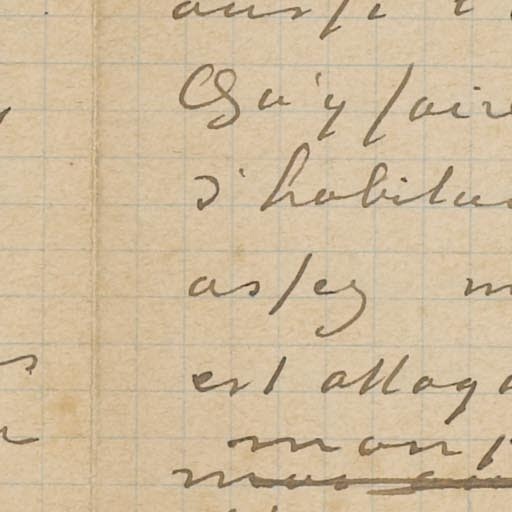 aussi
Qu'y faire
s'habitu
assez m
est attaq
mon p